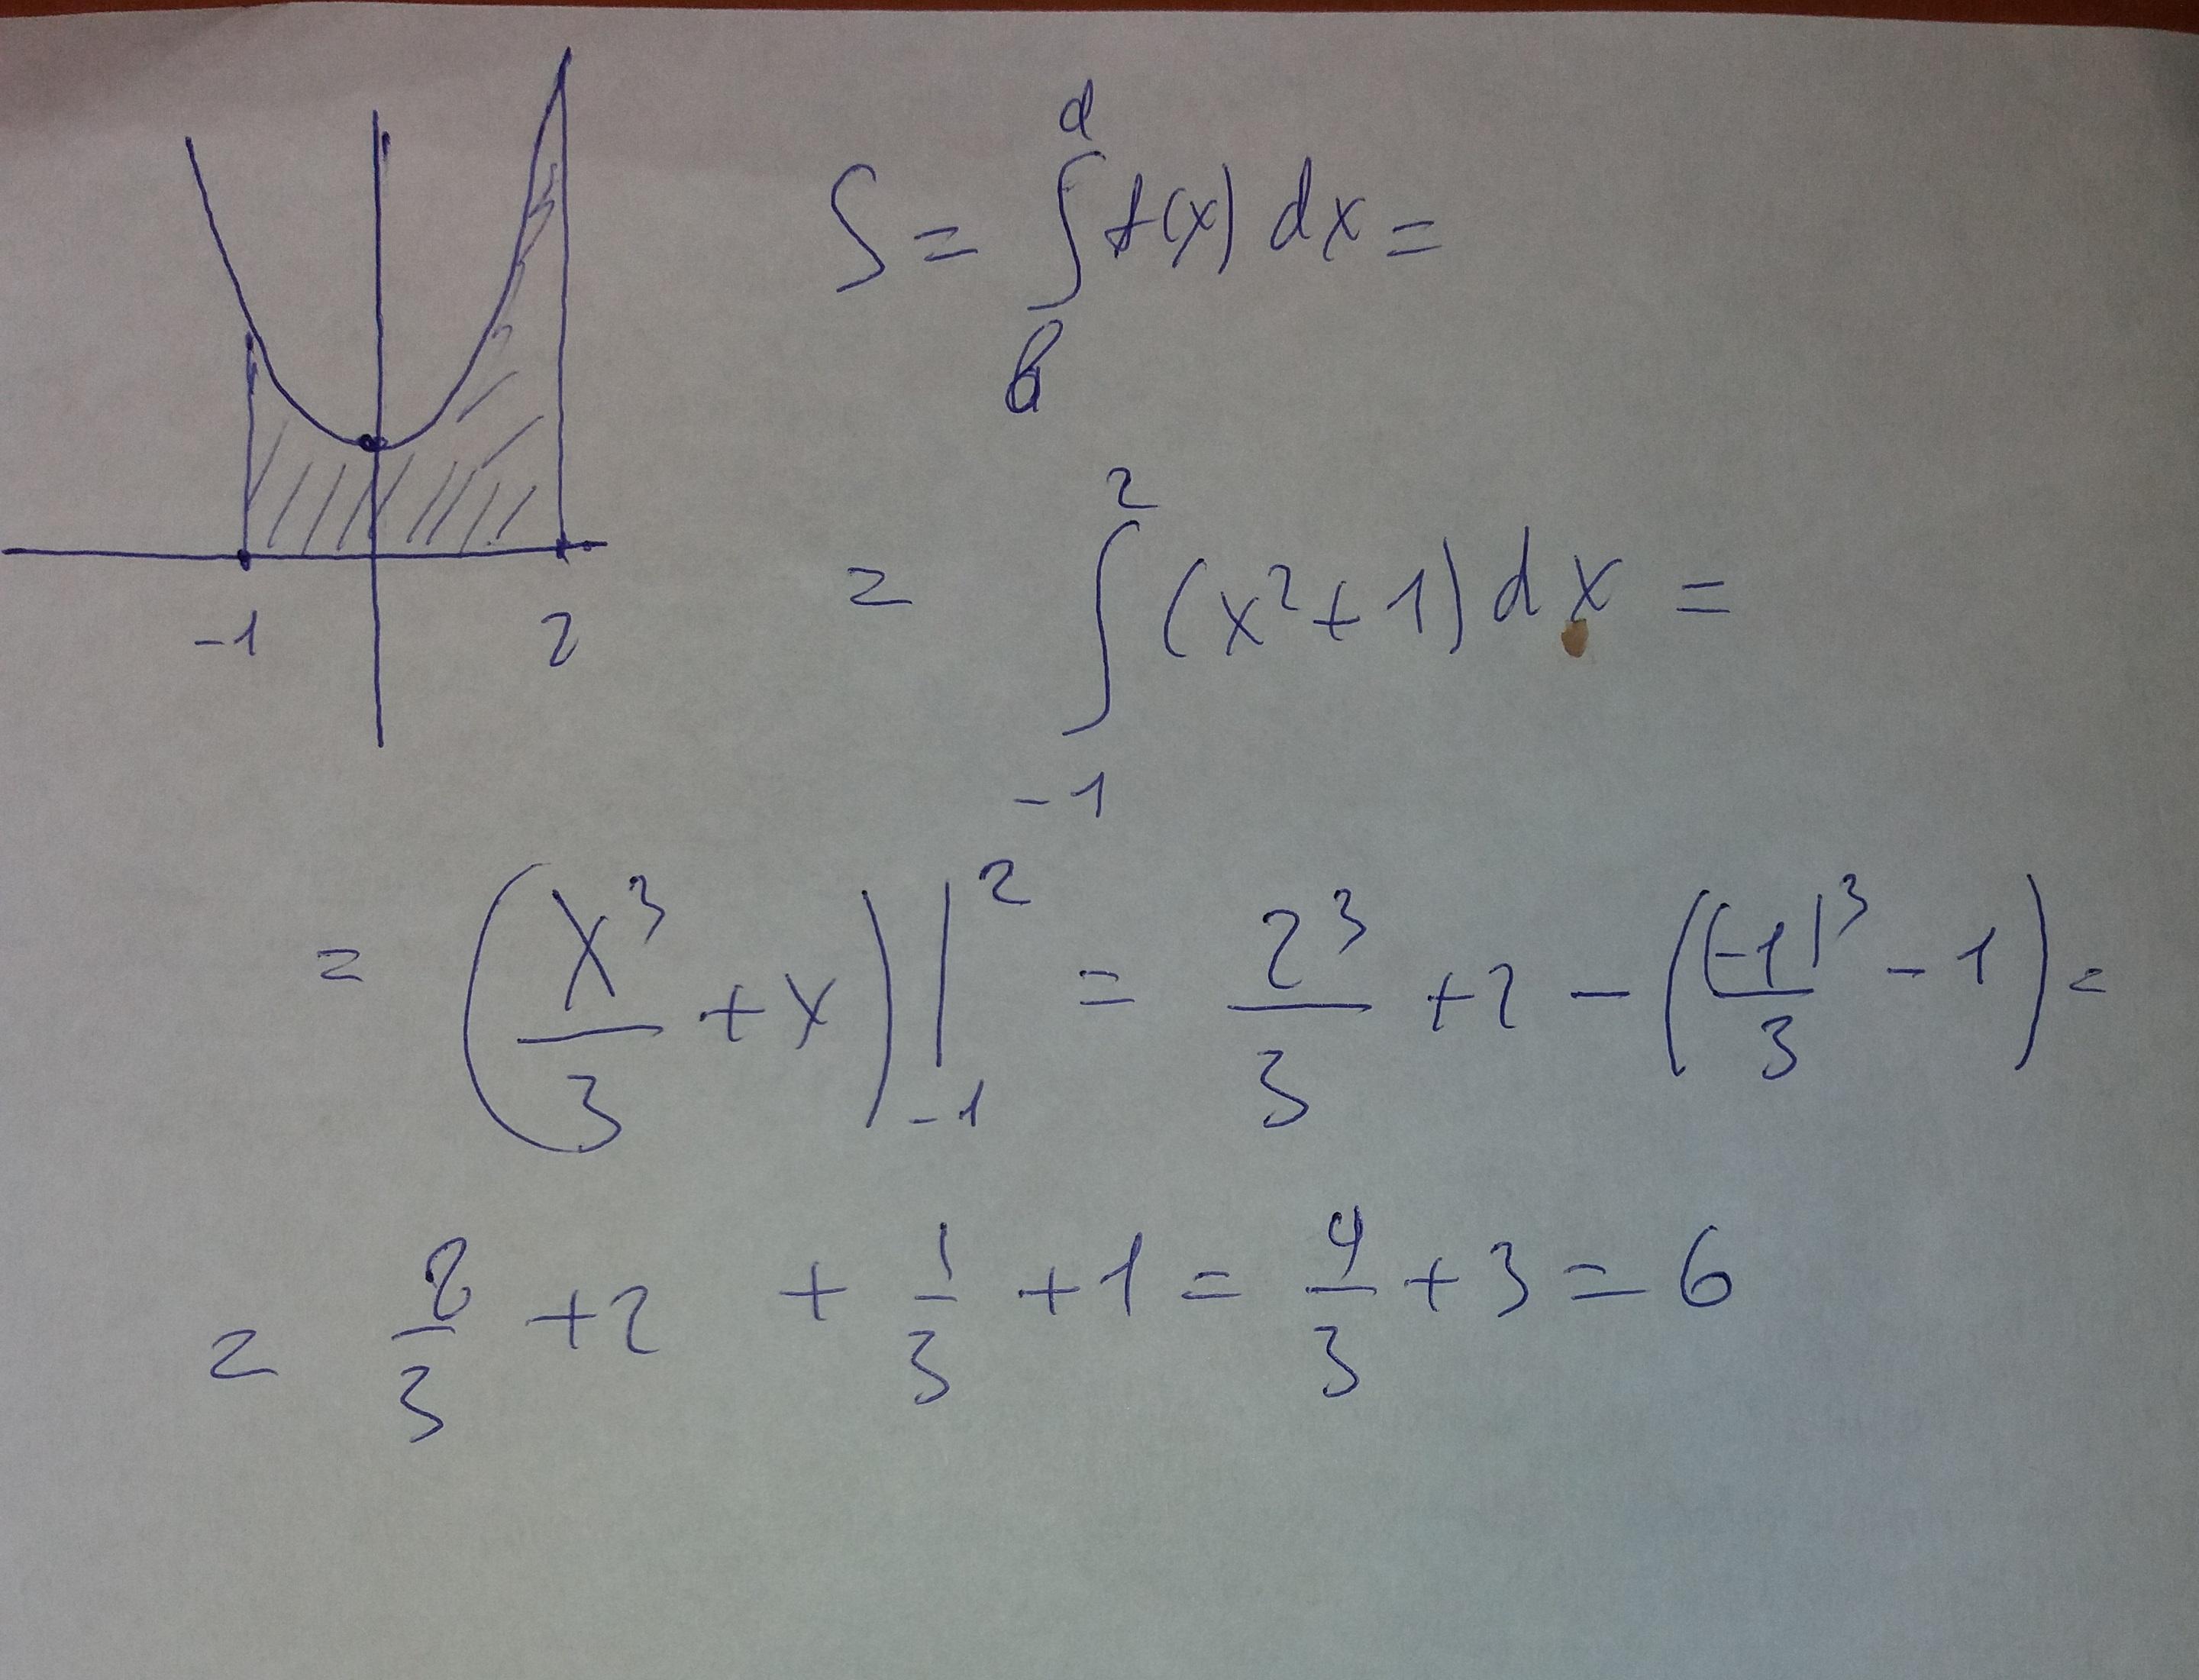 S = ∫ₐᵈ f(x) dx =
= ∫₋₁² (x² + 1) dx =
-1 2
= (x³/3 + x) |₋₁² = 2³/3 + 2 - ((-1)³/3 - 1) =
= 8/3 + 2 + 1/3 + 1 = 9/3 + 3 = 6